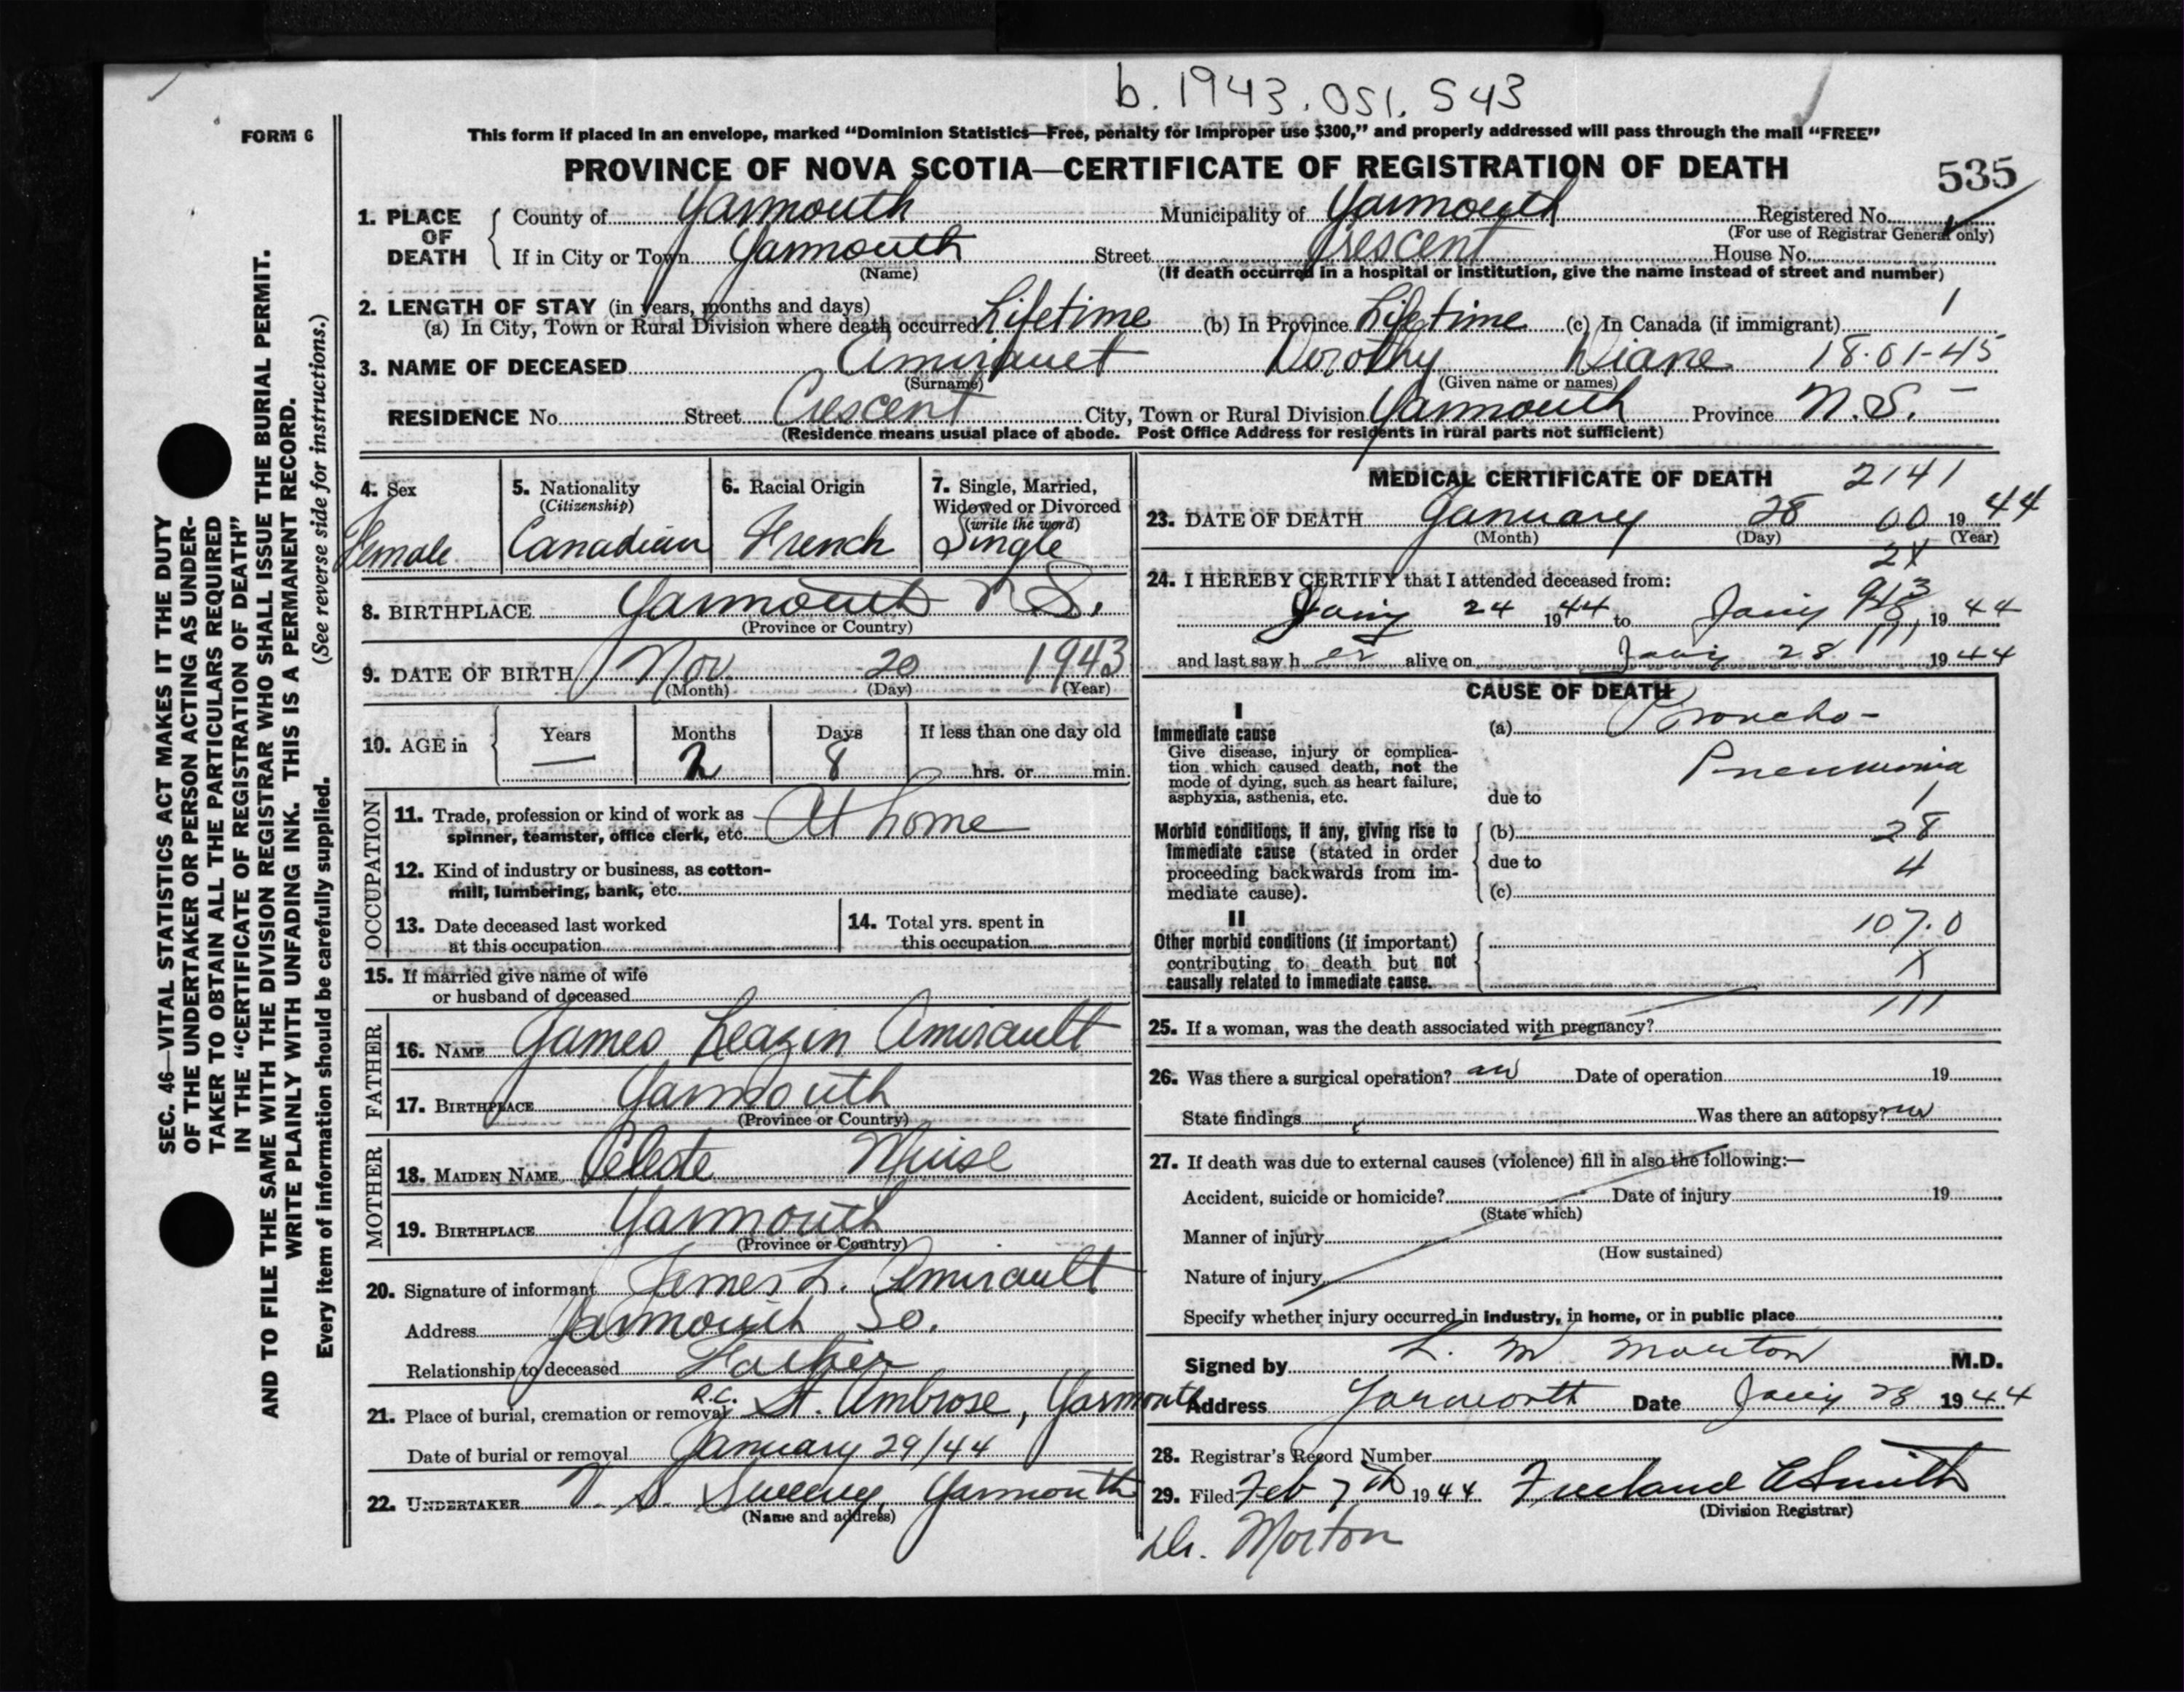 b. 1943. 051. 543
FORM 6
This form if placed in an envelope, marked "Dominion Statistics—Free, penalty for improper use $300," and properly addressed will pass through the mail "FREE"
PROVINCE OF NOVA SCOTIA—CERTIFICATE OF REGISTRATION OF DEATH
535
1. PLACE OF DEATH County of Yarmouth Municipality of Yarmouth Registered No.
(For use of Registrar General only)
If in City or Town Yarmouth Street Crescent House No.
(Name) (If death occurred in a hospital or institution, give the name instead of street and number)
2. LENGTH OF STAY (in years, months and days)
(a) In City, Town or Rural Division where death occurred Lifetime (b) In Province Lifetime (c) In Canada (if immigrant) 1
3. NAME OF DECEASED Dorothy Diane 18-01-45
(Surname) (Given name or names)
RESIDENCE No. Street Crescent City, Town or Rural Division Yarmouth Province N.S.
(Residence means usual place of abode. Post Office Address for residents in rural parts not sufficient)
4. Sex 5. Nationality 6. Racial Origin 7. Single, Married,
(Citizenship) Widowed or Divorced
(write the word)
Female Canadian French Single
8. BIRTHPLACE Yarmouth N.S.
(Province or Country)
9. DATE OF BIRTH Nov 20 1943
(Month) (Day) (Year)
10. AGE in Years Months Days If less than one day old
— 2 8 hrs. or min.
OCCUPATION
11. Trade, profession or kind of work as
spinner, teamster, office clerk, etc. At home
12. Kind of industry or business, as cotton-
mill, lumbering, bank, etc.
13. Date deceased last worked
at this occupation
14. Total yrs. spent in
this occupation
15. If married give name of wife
or husband of deceased
FATHER
16. NAME James Leazin Amirault
17. BIRTHPLACE Yarmouth
(Province or Country)
MOTHER
18. MAIDEN NAME Celeste Muise
19. BIRTHPLACE Yarmouth
(Province or Country)
20. Signature of informant James L. Amirault
Address Yarmouth So.
Relationship to deceased Father
21. Place of burial, cremation or removal R.C. St. Ambrose, Yarmouth
Date of burial or removal January 29/44
22. UNDERTAKER V. S. Sweeny, Yarmouth
(Name and address)
MEDICAL CERTIFICATE OF DEATH 2141
23. DATE OF DEATH January 28 00 1944
(Month) (Day) (Year)
24. I HEREBY CERTIFY that I attended deceased from:
24 1944 to 1944
and last saw her alive on 28 1944
CAUSE OF DEATH
I
Immediate cause
Give disease, injury or complica-
tion which caused death, not the
mode of dying, such as heart failure,
asphyxia, asthenia, etc.
(a) Broncho-
Pneumonia
due to 1
Morbid conditions, if any, giving rise to
immediate cause (stated in order
proceeding backwards from im-
mediate cause).
(b) 28
due to 4
(c)
II
Other morbid conditions (if important)
contributing to death but not
causally related to immediate cause.
107.0
X
111
25. If a woman, was the death associated with pregnancy?
26. Was there a surgical operation? Date of operation 19
State findings Was there an autopsy?
27. If death was due to external causes (violence) fill in also the following:—
Accident, suicide or homicide? Date of injury 19
(State which)
Manner of injury
(How sustained)
Nature of injury
Specify whether injury occurred in industry, in home, or in public place
Signed by L. M Morton M.D.
Address Yarmouth Date 28 1944
28. Registrar's Record Number
29. Filed Feb 7th 1944 Freeland A Smith
(Division Registrar)
Dr. Morton
SEC. 46—VITAL STATISTICS ACT MAKES IT THE DUTY
OF THE UNDERTAKER OR PERSON ACTING AS UNDER-
TAKER TO OBTAIN ALL THE PARTICULARS REQUIRED
IN THE "CERTIFICATE OF REGISTRATION OF DEATH"
AND TO FILE THE SAME WITH THE DIVISION REGISTRAR WHO SHALL ISSUE THE BURIAL PERMIT.
WRITE PLAINLY WITH UNFADING INK. THIS IS A PERMANENT RECORD.
Every item of information should be carefully supplied. (See reverse side for instructions.)